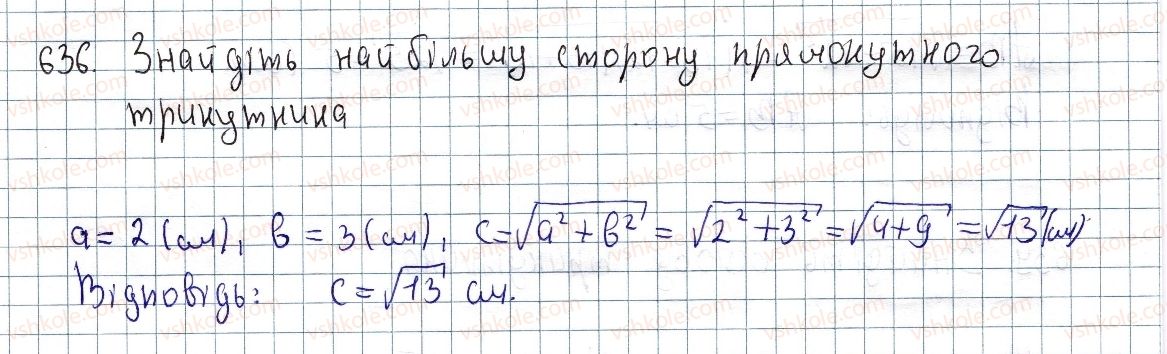 636. Знайдіть найбільшу сторону прямокутного
трикутника
a = 2 (см), b = 3 (см), c = √a² + b² = √2² + 3² = √4+9 = √13 (см)
Відповідь: c = √13 см.